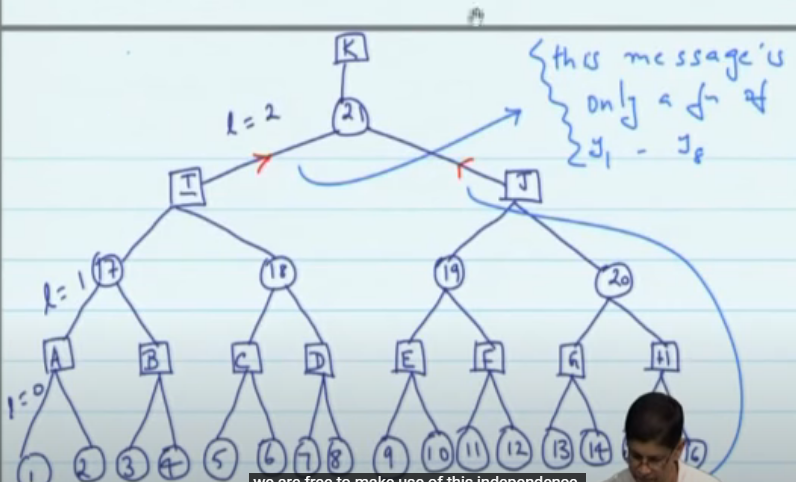 K
this message is
only a fn of
l = 2
21
y1 - y8
I
J
l = 1
17
18
19
20
A
B
C
D
E
F
G
H
l=0
1
2
3
4
5
6
7
8
9
10
11
12
13
14
6
we are free to make use of this independence